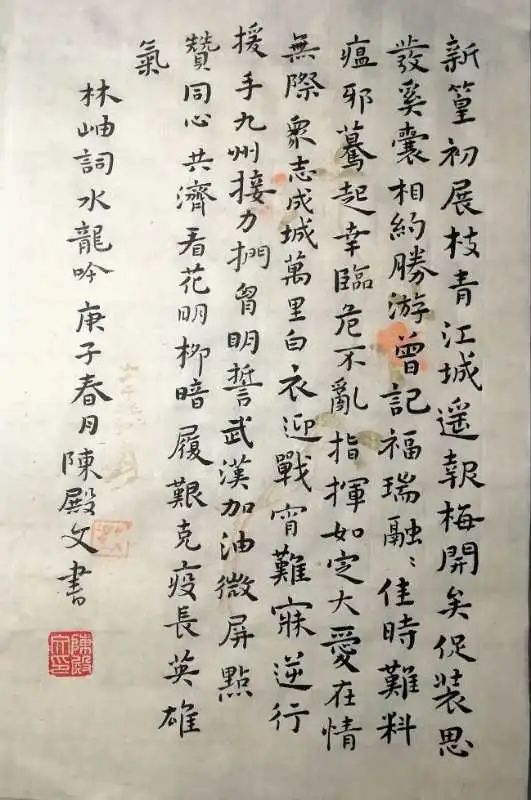 新篁初展枝青江城遥報梅開矣促装思
發奚囊相約勝游曾記福瑞融〻佳時難料
瘟邪驀起幸臨危不亂指揮如定大愛在情
無際衆志成城萬里白衣迎戰宵難寐逆行
援手九州接力捫胷明誓武漢加油微屏點
贊同心共濟看花明柳暗履艱克疫長英雄
氣
林岫詞水龍吟庚子春月陳殿文書
陳殿文印